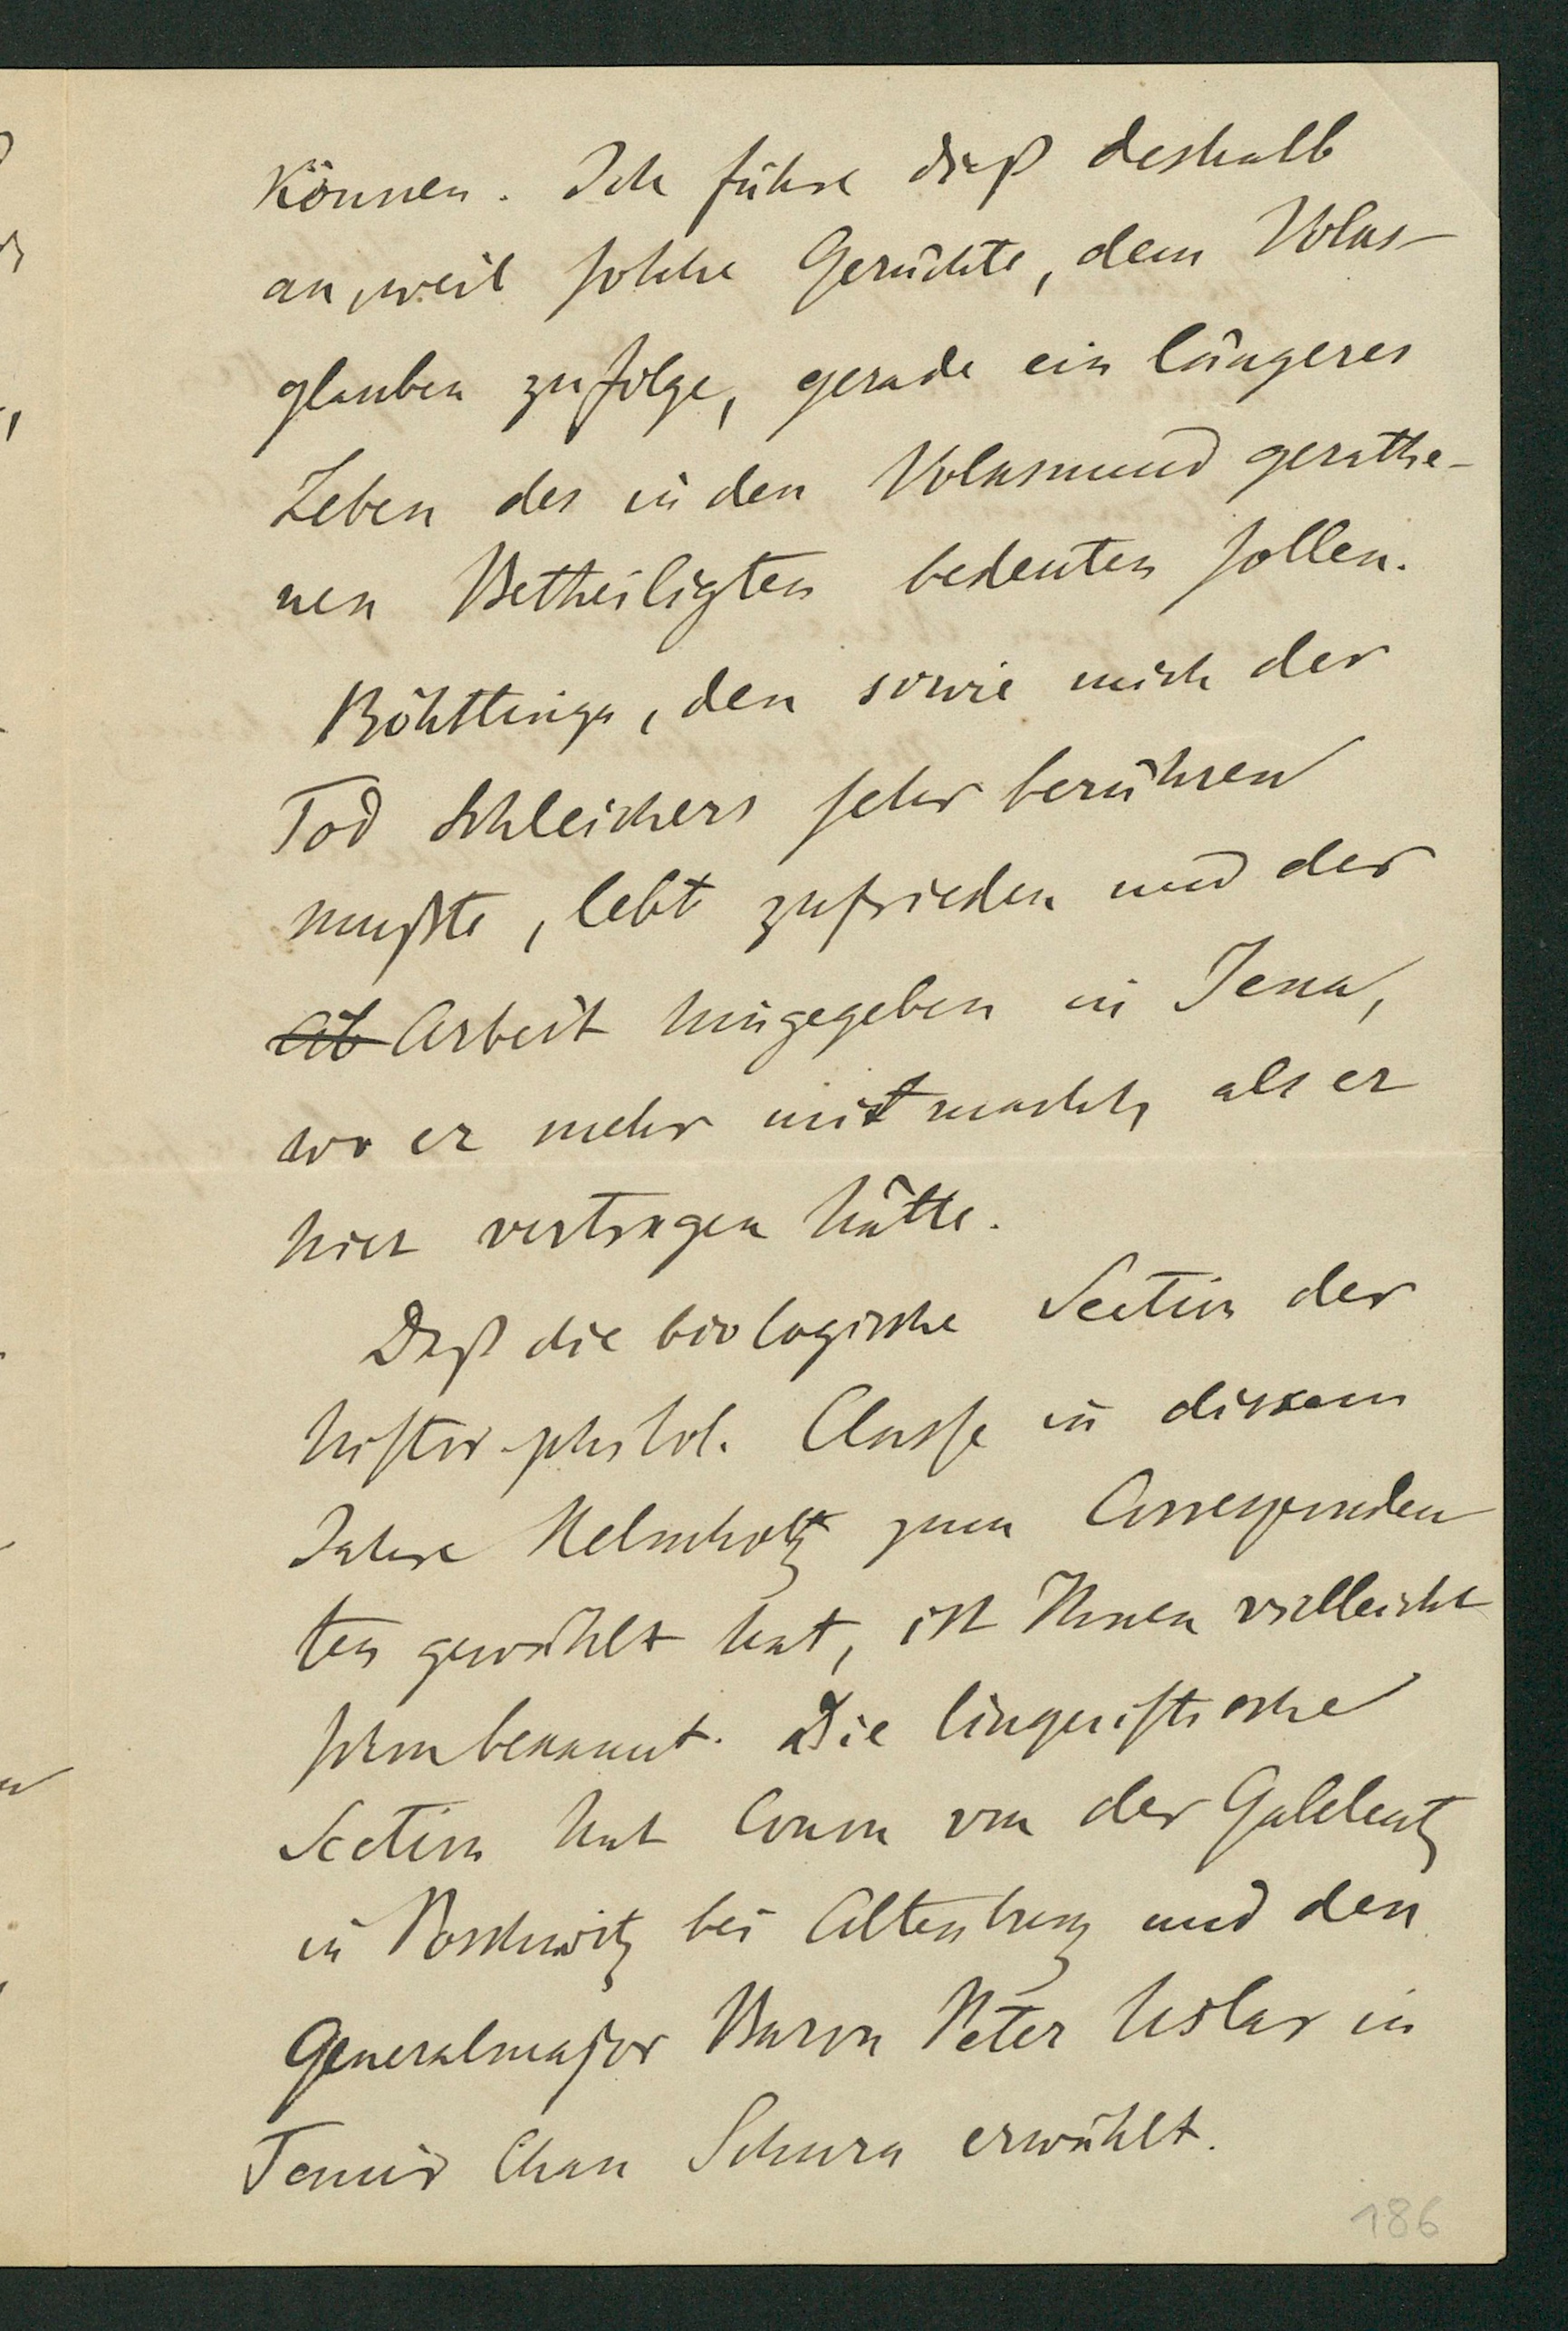 können. Ich führe dieß deshalb
an, weil solche Gerüchte, dem Volks-
glauben zufolge, gerade ein längeres
Leben des in den Volksmund gerathe-
nen Betheiligten bedeuten sollen.
Böhtlingk, den sowie mich der
Tod Schleichers sehr berühren
mußte, lebt zufrieden und der
Arbeit hingegeben in Jena,
wo er mehr mitmacht, als er
hier vertragen hätte.
Daß die biologische Section der
histor-philol. Classe in diesem
Jahre Helmholtz zum Corresponden
ten gewählt hat, ist Ihnen vielleicht
schon bekannt. Die linguistische
Section hat Conon von der Gabelentz
in Poschwitz bei Altenburg und den
Generalmajor Baron Peter Uslar in
Temir Chan Schura erwählt.
186